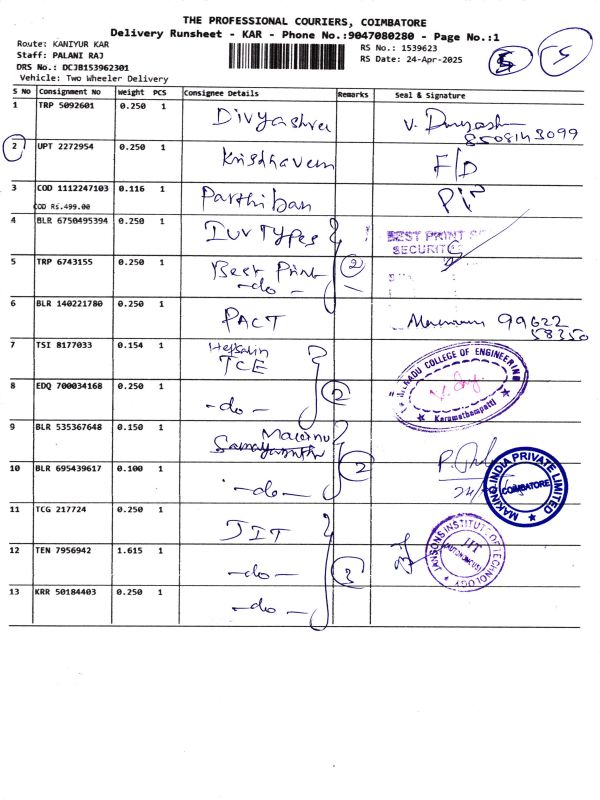 THE PROFESSIONAL COURIERS, COIMBATORE
Delivery Runsheet - KAR - Phone No.:9047080280 - Page No.:1
Route: KANIYUR KAR
RS No.: 1539623
Staff: PALANI RAJ
RS Date: 24-Apr-2025
DRS No.: DCJB153962301
Vehicle: Two Wheeler Delivery
5
S No Consignment No Weight PCS Consignee Details Remarks Seal & Signature
1 TRP 5092601 0.250 1 Divyashree V. 8508143099
2 UPT 2272954 0.250 1 F/D
3 COD 1112247103 0.116 1 Parthiban
COD RS.499.00
4 BLR 6750495394 0.250 1 Types BEST PRINT
SECURIT
5 TRP 6743155 0.250 1 Best Print 2
-do-
6 BLR 140221780 0.250 1 PACT 99622
58350
7 TSI 8177033 0.154 1 TCE COLLEGE OF ENGINEERING
Karumathampatti
8 EDQ 700034168 0.250 1 -do- 2
9 BLR 535367648 0.150 1
10 BLR 695439617 0.100 1 -do- 2 24/
MAKINO INDIA PRIVATE LIMITED
COIMBATORE
11 TCG 217724 0.250 1 JIT
JANSONS INSTITUTE OF TECHNOLOGY
JIT
(AUTONOMOUS)
12 TEN 7956942 1.615 1 -do- 3
13 KRR 50184403 0.250 1 -do-